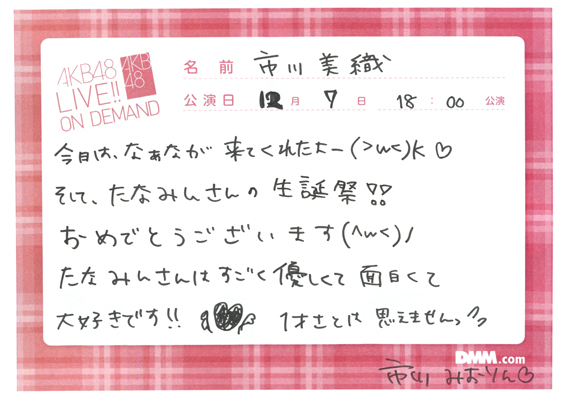 AKB48
LIVE!!
ON DEMAND
AKB
48
名前 市川美織
公演日 12月 7日 18:00 公演
今日は、なぁなが 来てくれたよー(>ω<)k ♡
そして、たなみんさんの 生誕祭!!
おめでとうございます(^ω<)ノ
たなみんさんはすごく優しくて 面白くて
大好きです!! 1才さとは 思えませんっ
DMM.com
市川 みおりん♡